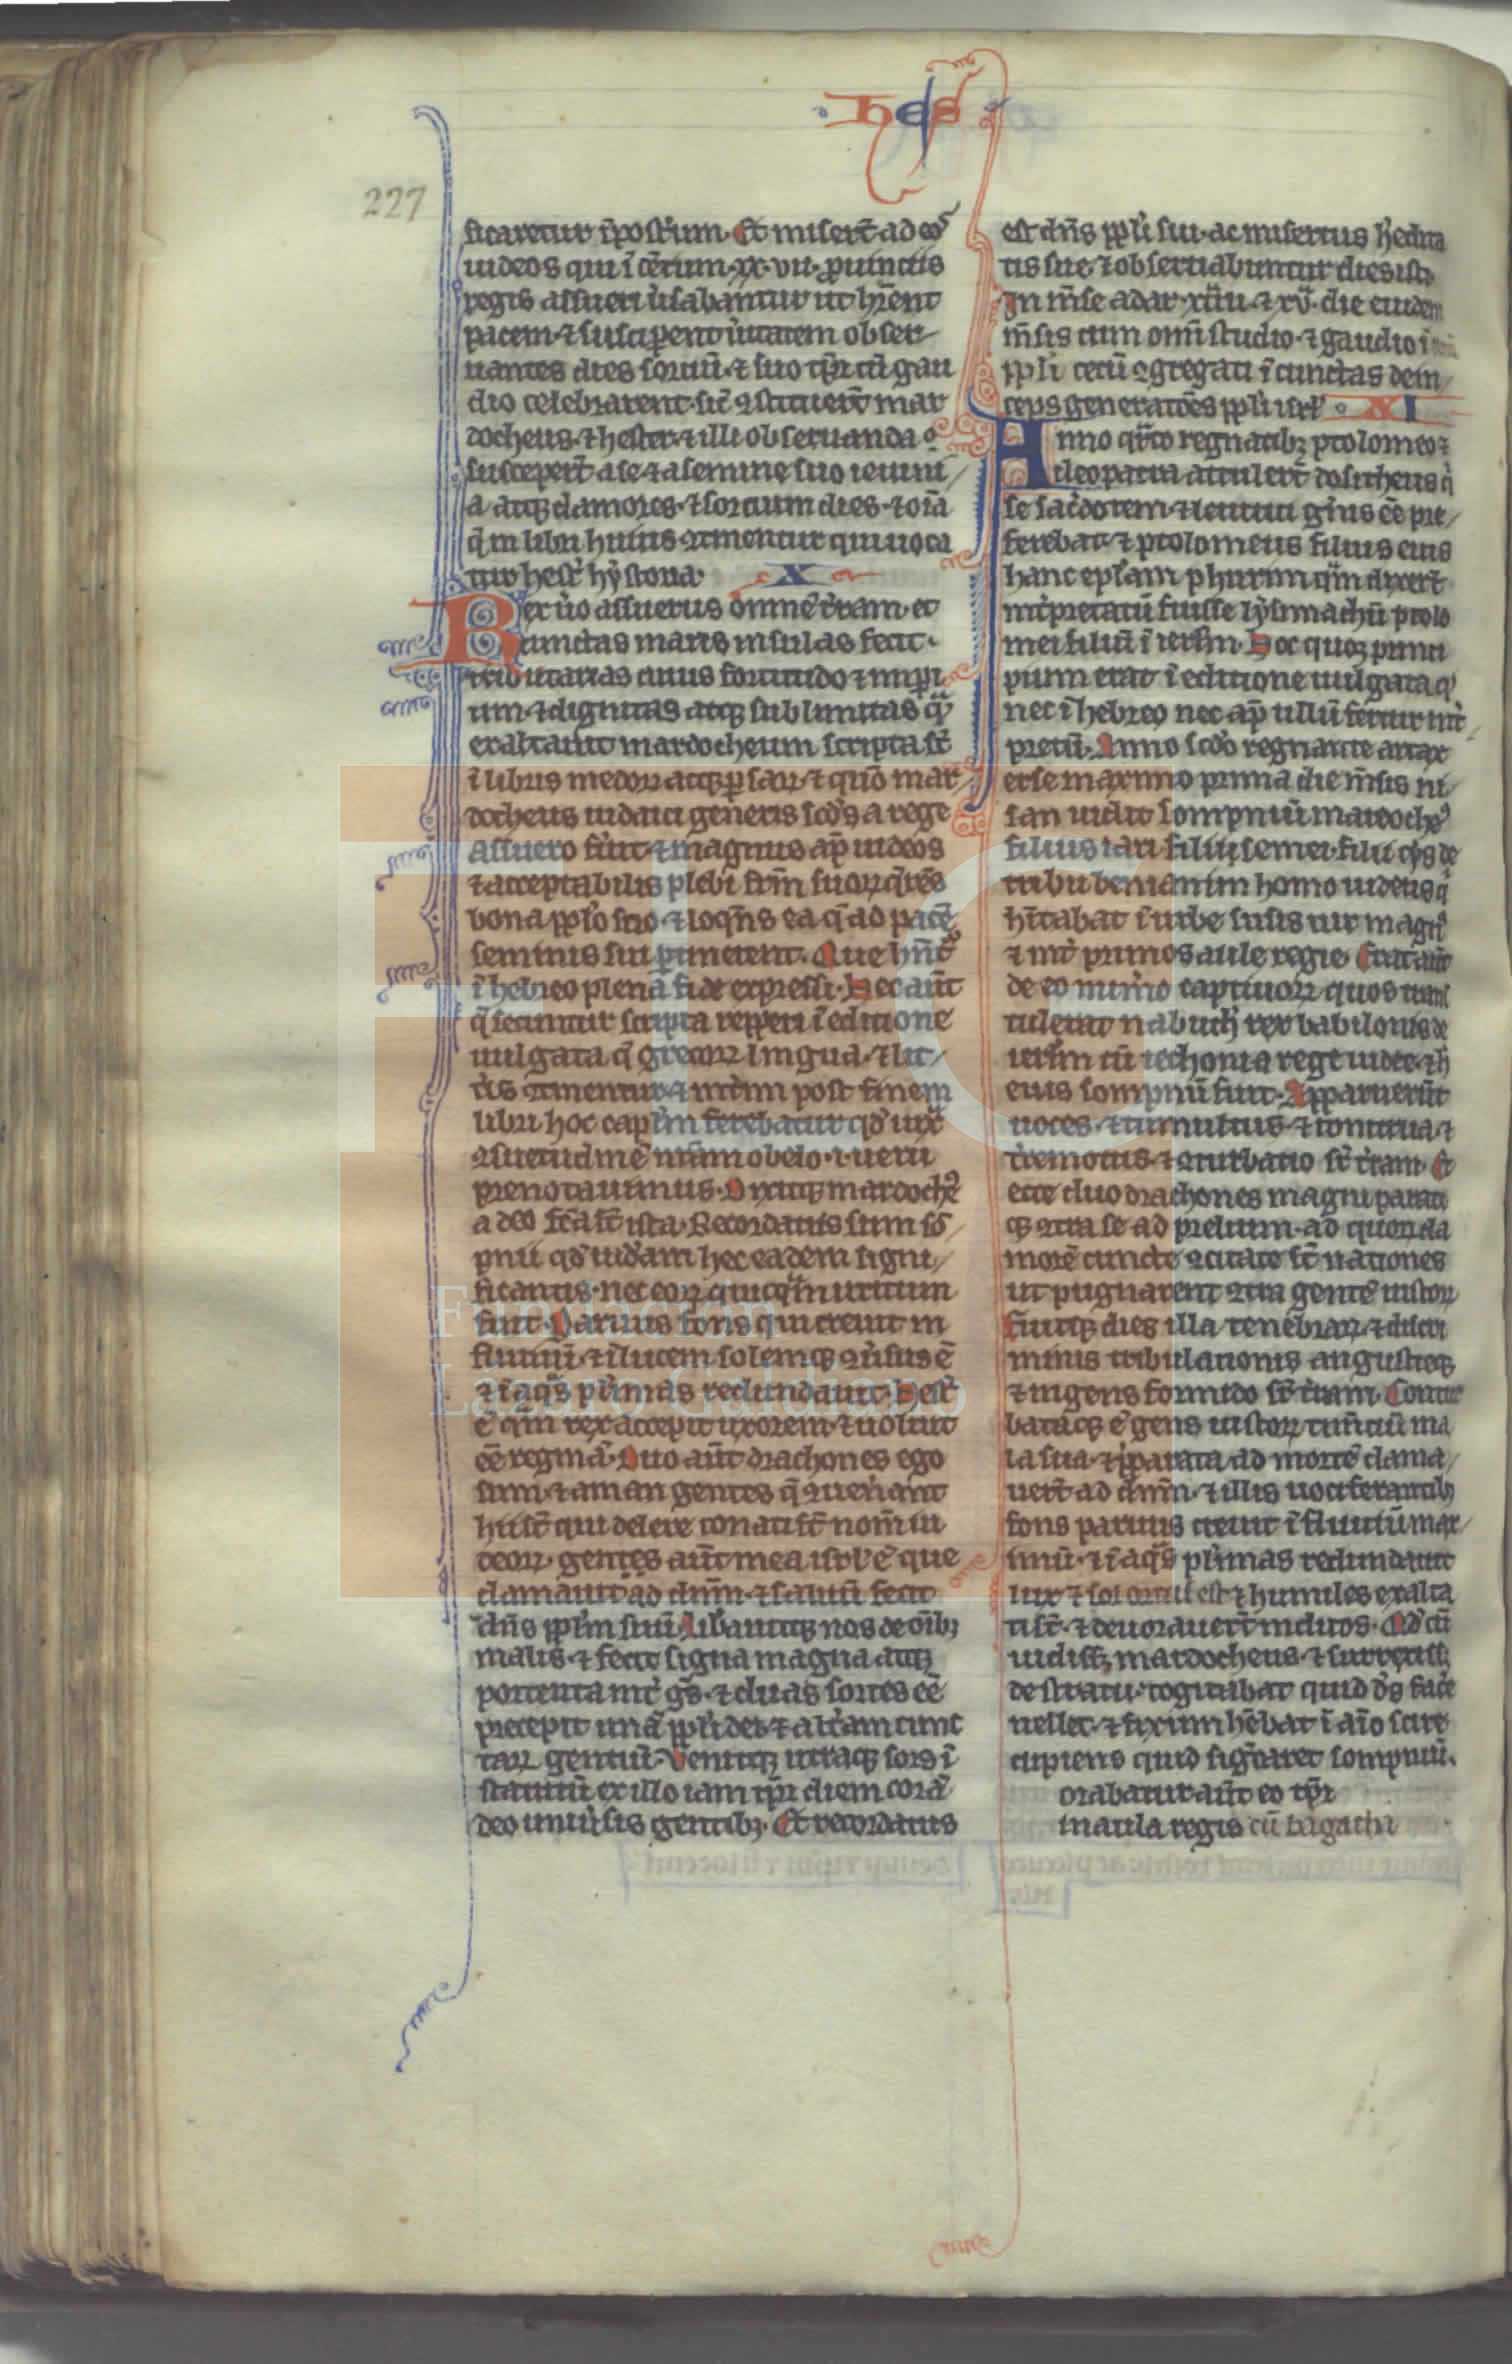 hes
227
ficaretur ĩposťum. Et miserť ad eos
uideos qui ĩ cẽtum. xx. vii. ꝓuinciis
regis assueri ũsabantur ut hr̃ent
pacem ⁊ susciꝑent ũitatem obser
uantes dies sortiũ ⁊ suo tꝑr cũ gau
dio celebrarent. sic̃ ꝯstituerť mar
docheus ⁊ hester ⁊ illi obseruanda
susceperť a se ⁊ a semine suo ieiuni
a atqȝ clamores ⁊ sortium dies ⁊ oĩa
q̃ in libri huius ꝯtinentur qui uoca
tur hesť hẏstoria. X
Rex ũo assuerus omnẽ ťram. et
cunctas maris insulas fecit.
tributarias cuius fortitudo ⁊ imꝑi
um. ⁊ dignitas atqȝ sublimitas q̃
exaltauit mardocheum scripta sť
ĩ libris medoꝝ atqȝ ꝑsaꝝ ⁊ quõ mar
docheus iudaici generis scd̃s a rege
assuero fũit ⁊ magnus ap̃ iudeos
⁊ acceptabilis plebi fr̃m suoꝝ q̃rẽs
bona ppl̃o suo ⁊ loqñs ea q̃ ad pacẽ
seminis sui ꝑtinerent. Que hñť
ĩ hebreo plena fide expressi. Hec aũt
q̃ secuntur scripta repperi ĩ editione
uulgata q̃ grecoꝝ lingua. ⁊ lit
ťis ꝯtinentur. ⁊ inťim post finem
libri hoc capl̃m ferebatur qď iux̃
ꝯsuetudinẽ nr̃am obelo .i. ueru
prenotauimus. Dixitqȝ mardoche9
a deo fc̃a sť ista. Recordatus sum sõ
pnii qď uiďam hec eadem signi
ficantis. nec eoꝝ quicq̃m irritum
fuit. Paruus fons qui creuit in
fluuiũ. ⁊ ĩ lucem solemqȝ ꝯũsus ẽ
⁊ ĩ aq̃s pl̃imas redundauit. Hesť
ẽ q̃m rex accepit uxorem ⁊ uoluit
eẽ reginã. Duo aũt drachones ego
sum. ⁊ aman gentes q̃ ꝯueñant
hii sť qui delere conati sť nom̃ iu
deoꝝ. gentes aũt mea isrl̃ ẽ que
clamauit ad dñm. ⁊ saluũ fecit
dñs ppl̃m suũ. Lib̃auitqȝ nos de oĩbȝ
malis. ⁊ fecit signa magna atqȝ
portenta inť gẽs. ⁊ duas sortes eẽ
precepit unã ppl̃i dei. ⁊ alťam cunc
taꝝ gentiũ. Venitqȝ utraqȝ sors ĩ
statutũ ex illo iam tꝑr diem corã
deo uniũsis gentibȝ. Et recordatus
est dñs ppl̃i sui. ac misertus hedita
tis sue. ⁊ obseruabuntur dies isti
In m̃se adar. xiiii. ⁊ xv. die eiudem
m̃sis cum omi studio. ⁊ gaudio ĩ
ppl̃i cetũ ꝯgregati ĩ cunctas dein
ceps generatões ppl̃i isrl̃ XI
Anno qr̃to regnãtibȝ ptolomeo ⁊
cleopatra attulerť dositheus q̃
se saćdotem. ⁊ leuitici gñis eẽ pre
ferebat. ⁊ ptolomeus filius eius
hanc epl̃am phurim q̃m dixerť
inťpretatũ fuisse lẏsimachũ ptolo
mei filiũ ĩ ierl̃m. Hoc quoqȝ princi
pium erat ĩ editione uulgata q̃
nec ĩ hebreo nec ap̃ ullũ fertur inť
pretũ. Anno scďo regnante artax
erse maximo prima die m̃sis ni
san uidit sompniũ mardoche9
filius iari filii semei. filii cẏs de
tribu beniamim homo iudeus q̃
hĩtabat ĩ urbe susis uir magñ9
⁊ inť primos aule regie. Erat aũt
de eo nuḿo captiuoꝝ quos trans
tulerat nabuch̃ rex babilonis de
ierl̃m cũ iechonia rege iudee. ⁊ h̃
eius sompniũ fuit. Apparuerũt
uoces. ⁊ tumultus. ⁊ tonitrua. ⁊
ťremotus. ⁊ ꝯturbatio sř ťram. Et
ecce duo drachones magni parati
qȝ ꝯtra se ad prelium. ad quoꝝ cla
morẽ cuncte ꝯcitate sť nationes
ut pugnarent ꝯtra gentẽ iustoꝝ
fuitqȝ dies illa tenebraꝝ. ⁊ discri
minis tribulationis angustieqȝ
⁊ ingens formido sř ťram. Contur
bataqȝ ẽ gens iustoꝝ timẽtiũ ma
la sua. ⁊ p̃parata ad mortẽ clama
uerť ad dñm. ⁊ illis uociferantibȝ
fons paruus creuit ĩ fluuiũ max
imũ. ⁊ ĩ aq̃s pl̃imas redundauit
lux ⁊ sol ortus est ⁊ humiles exalta
ti sť. ⁊ deuorauerť inclitos. Qď cũ
uidissȝ mardocheus. ⁊ surrexissȝ
de stratu. cogitabat quid ds̃ faće
uellet. ⁊ fixum hẽbat ĩ aĩo scire
cupiens quid sigñaret sompniũ.
orabatur aũt eo tꝑr
in aula regis cũ bagatha
Fundación
Lázaro Galdiano